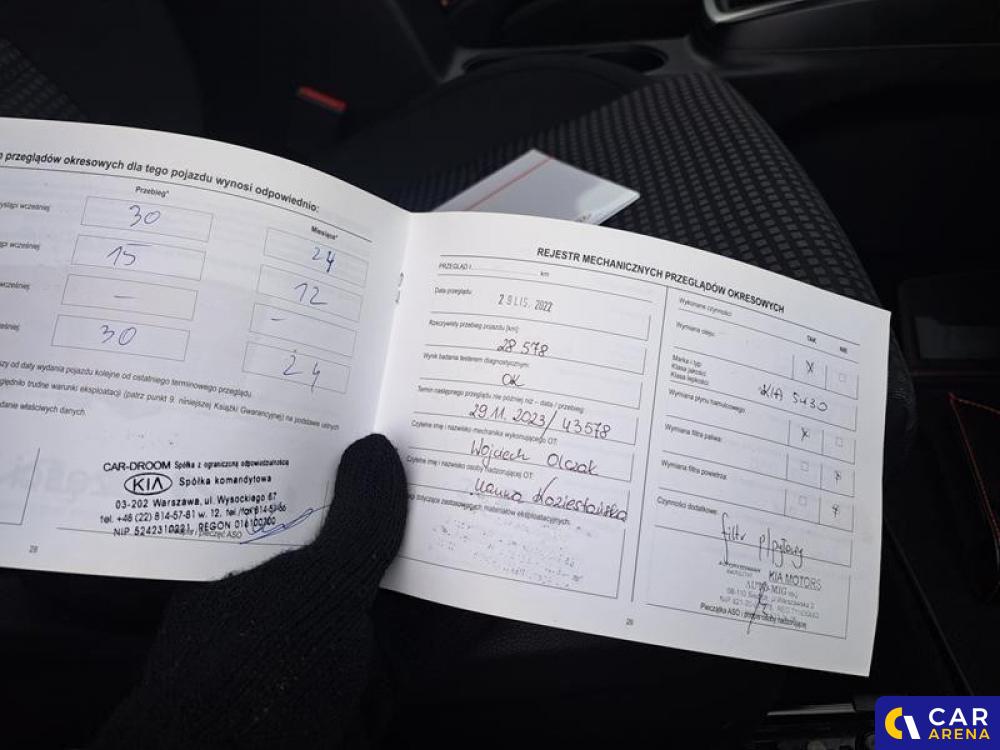 przeglądów okresowych dla tego pojazdu wynosi odpowiednio:
Przebieg*
Miesiące*
wcześniej
30
24
wcześniej
15
12
wcześniej
-
-
30
24
od daty wydania pojazdu kolejne od ostatniego terminowego przeglądu.
trudne warunki eksploatacji (patrz punkt 9. niniejszej Książki Gwarancyjnej) na podstawie
właściwych danych.
CAR-DROOM Spółka z ograniczoną odpowiedzialnością
KIA Spółka komandytowa
03-202 Warszawa, ul. Wysockiego 67
tel. +48 (22) 814-57-81 w. 12, tel./fax
NIP 5242310221, REGON 016100700
pieczęć ASO
28
REJESTR MECHANICZNYCH PRZEGLĄDÓW OKRESOWYCH
PRZEGLĄD I km
Data przeglądu:
29 LIS. 2022
Rzeczywisty przebieg pojazdu [km]:
28 578
Wynik badania testerem diagnostycznym:
OK
Termin następnego przeglądu nie później niż – data / przebieg:
29.11.2023/43578
Czytelne imię i nazwisko mechanika wykonującego OT:
Wojciech Olczak
Czytelne imię i nazwisko osoby nadzorującej OT:
dotyczące zastosowanych materiałów eksploatacyjnych:
Wykonane czynności:
TAK
NIE
Wymiana oleju:
X
Marka i typ:
Klasa jakości:
Klasa lepkości:
KIA 5W30
Wymiana płynu hamulcowego:
X
Wymiana filtra paliwa:
X
Wymiana filtra powietrza:
X
Czynności dodatkowe:
filtr p/pyłowy
KIA MOTORS
Pieczątka ASO i podpis osoby nadzorującej
29
CAR
ARENA